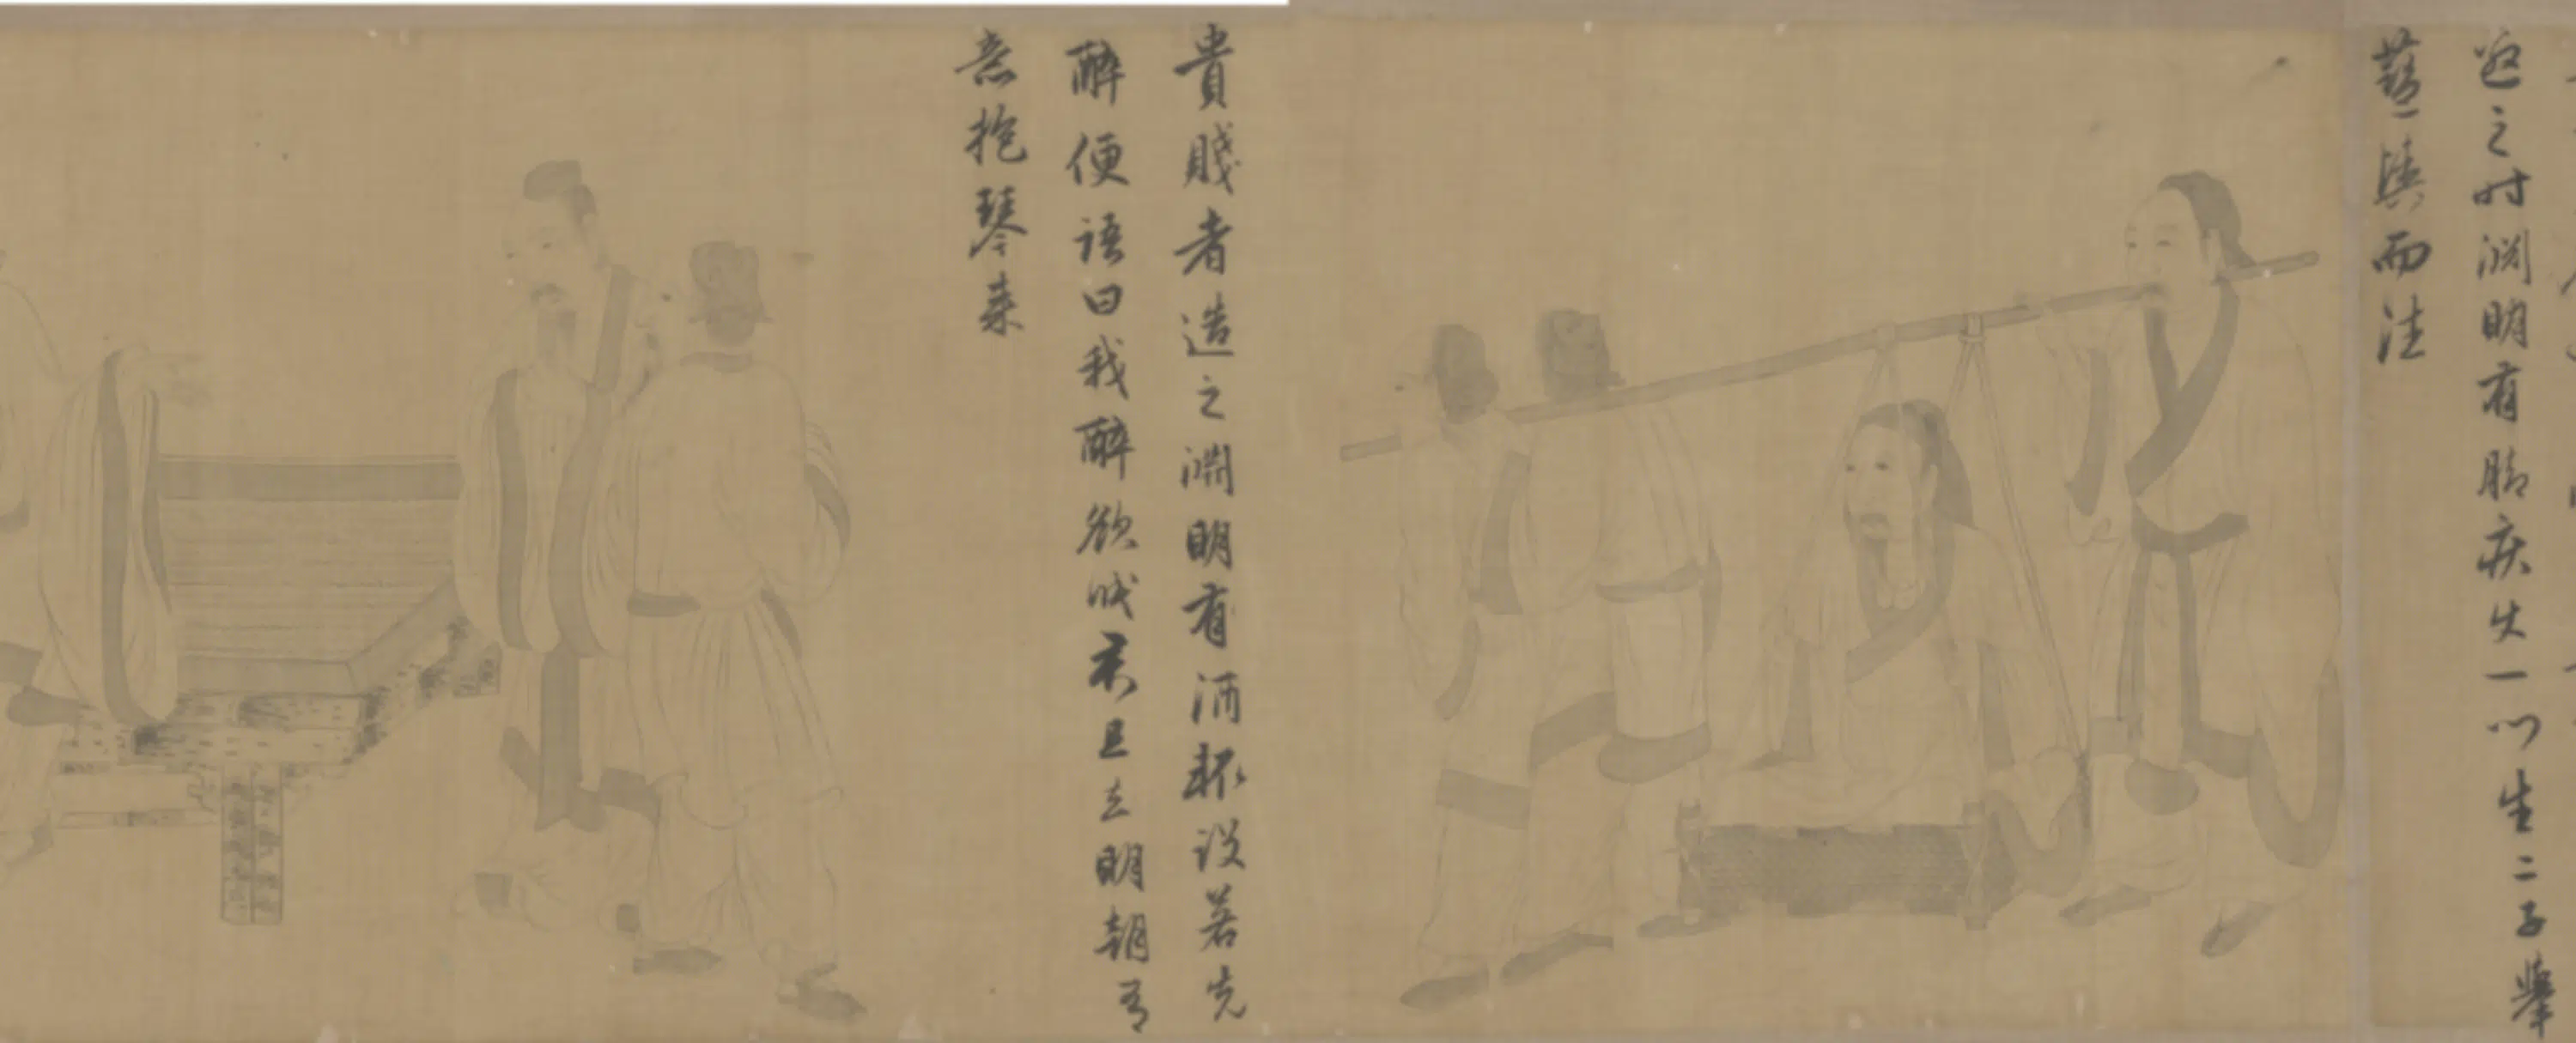 迎之时渊明有脚疾使一门生二子舉
藍輿而往
貴賤者造之渊明有酒輒设若先
醉便语曰我醉欲眠
君且去明朝有
意抱琴来